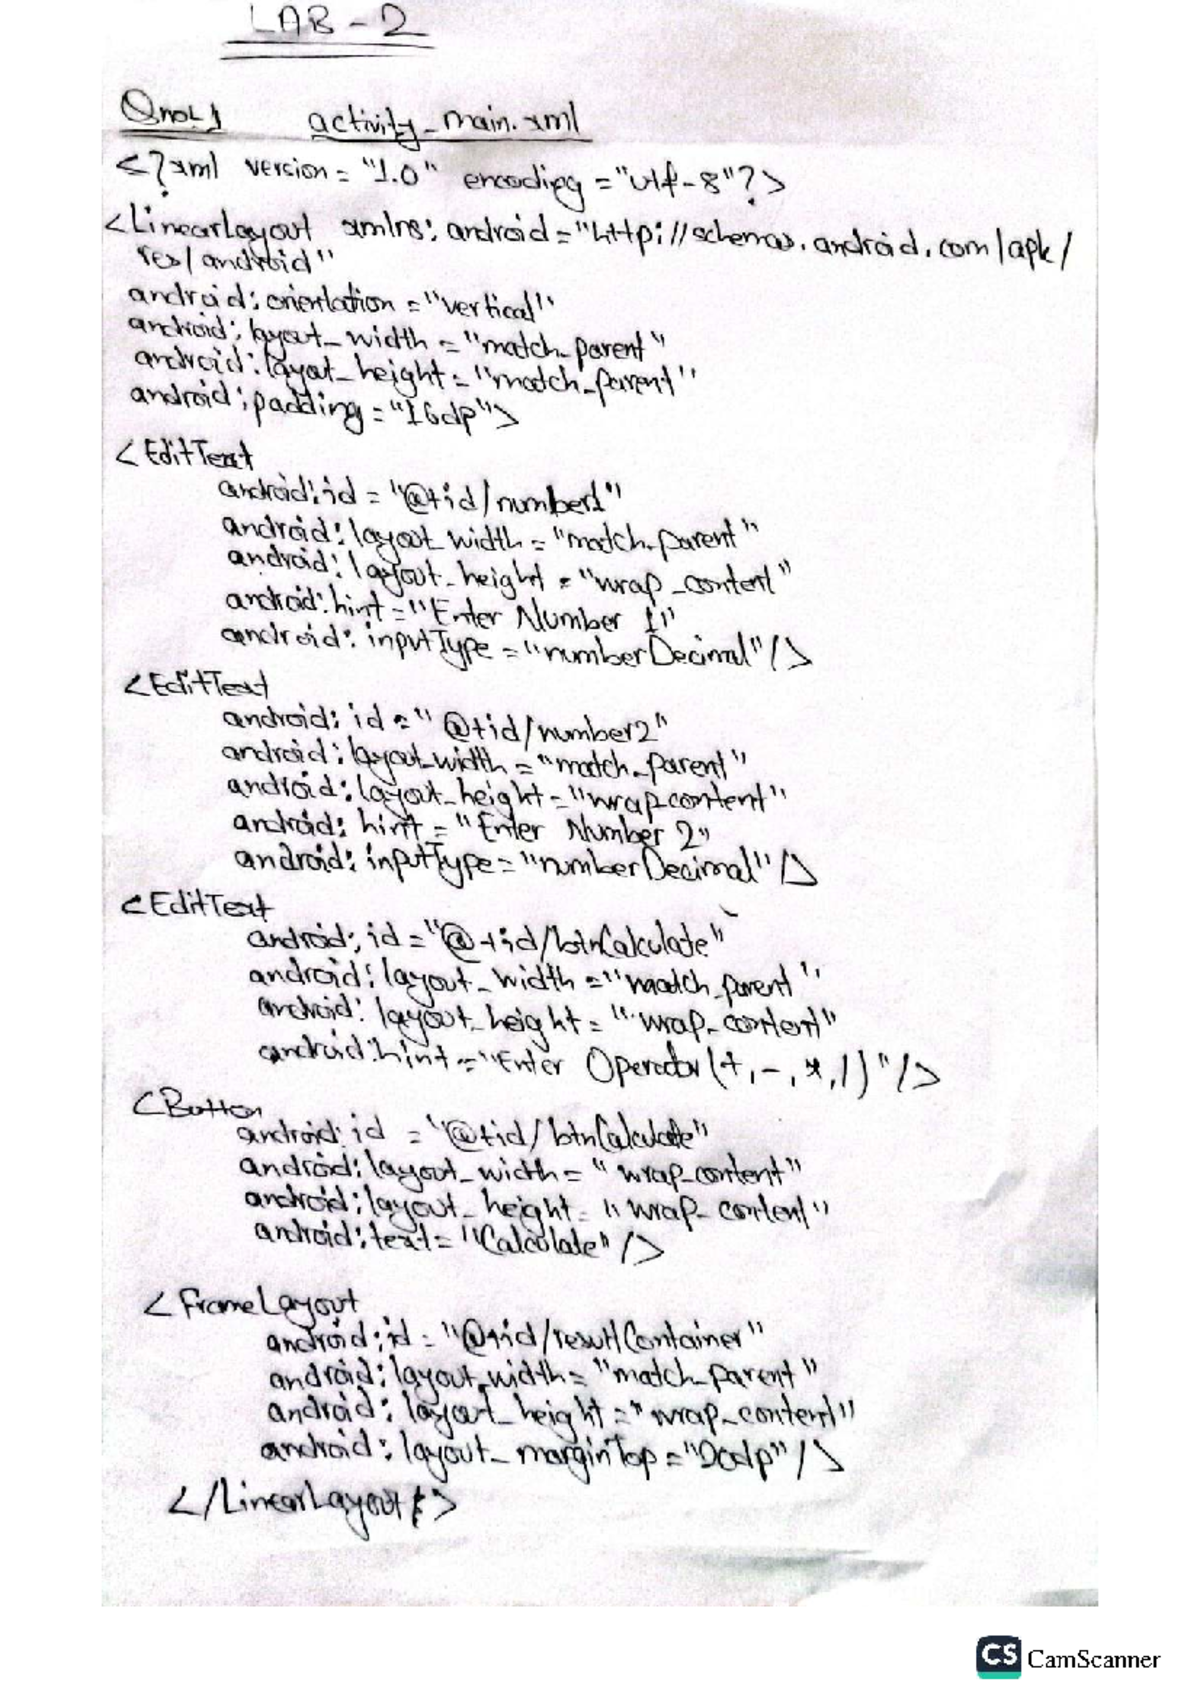 LAB - 2
Qno1.1 activity_main.xml
<?xml version = "1.0" encoding = "utf-8"?>
<LinearLayout xmlns: android = "http://schemas.android.com/apk/
res/android"
android:orientation = "vertical"
android:layout_width = "match_parent"
android:layout_height = "match_parent"
android:padding = "16dp">
<EditText
android:id = "@+id/number1"
android:layout_width = "match_parent"
android:layout_height = "wrap_content"
android:hint = "Enter Number 1"
android:inputType = "numberDecimal"/>
<EditText
android:id = "@+id/number2"
android:layout_width = "match_parent"
android:layout_height = "wrap_content"
android:hint = "Enter Number 2"
android:inputType = "numberDecimal"/>
<EditText
android:id = "@+id/btnCalculate"
android:layout_width = "match_parent"
android:layout_height = "wrap_content"
android:hint = "Enter Operator (+, -, *, /)"/>
<Button
android:id = "@+id/btnCalculate"
android:layout_width = "wrap_content"
android:layout_height = "wrap_content"
android:text = "Calculate"/>
<FrameLayout
android:id = "@+id/resultContainer"
android:layout_width = "match_parent"
android:layout_height = "wrap_content"
android:layout_marginTop = "20dp"/>
</LinearLayout>
CS CamScanner